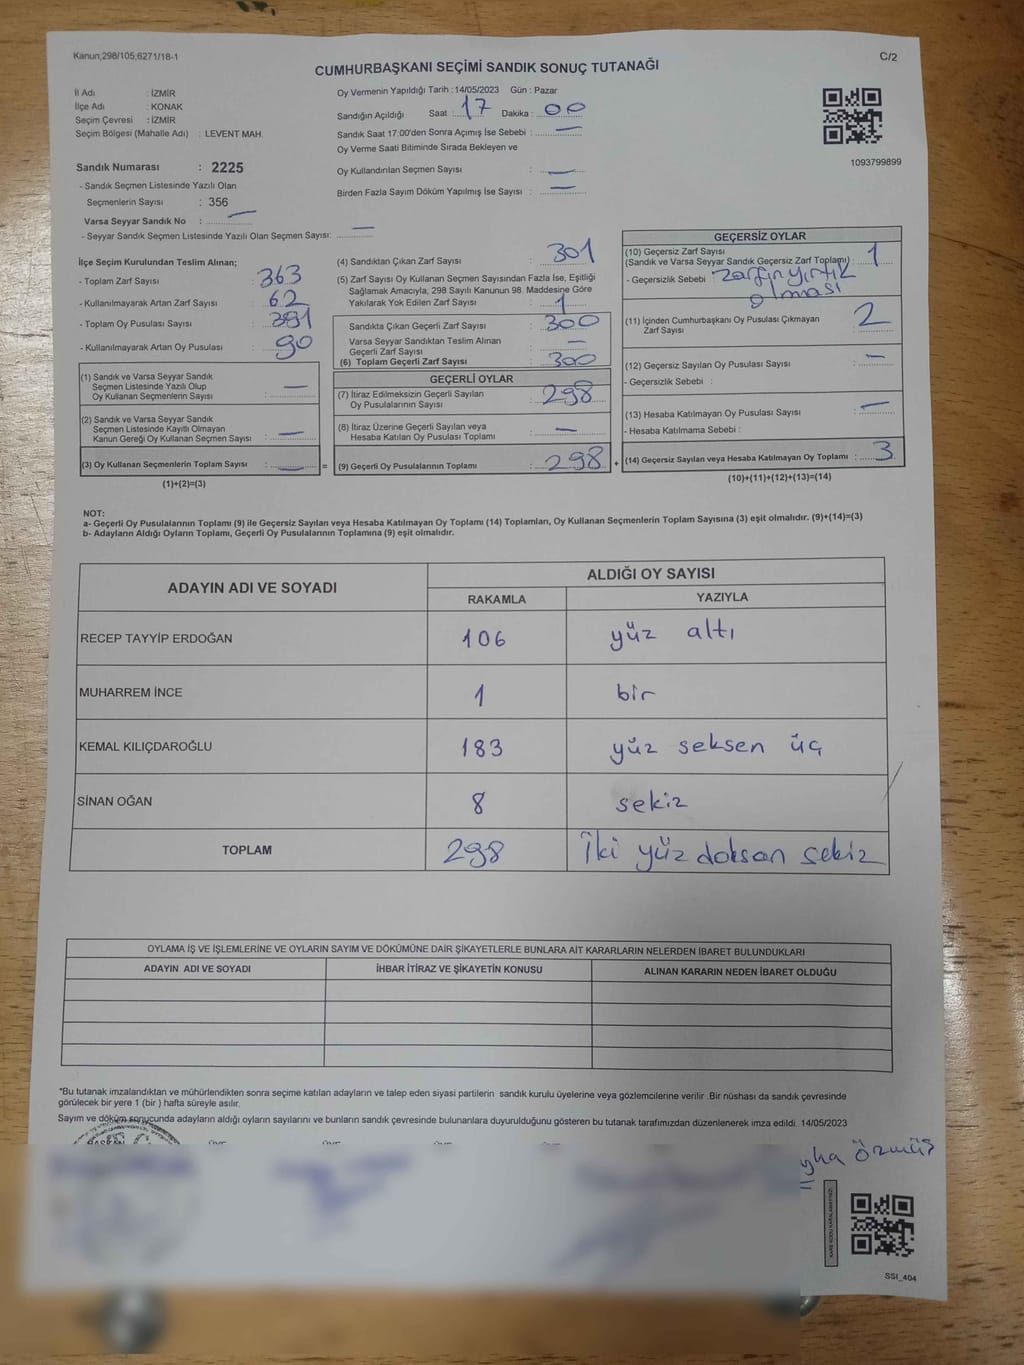 Kanun;298/105;6271/18-1
C/2
CUMHURBAŞKANI SEÇİMİ SANDIK SONUÇ TUTANAĞI
İl Adı : İZMİR
İlçe Adı : KONAK
Seçim Çevresi : İZMİR
Seçim Bölgesi (Mahalle Adı) : LEVENT MAH.
Sandık Numarası : 2225
- Sandık Seçmen Listesinde Yazılı Olan
Seçmenlerin Sayısı : 356
Varsa Seyyar Sandık No : —
- Seyyar Sandık Seçmen Listesinde Yazılı Olan Seçmen Sayısı: —
Oy Vermenin Yapıldığı Tarih : 14/05/2023 Gün : Pazar
Sandığın Açıldığı Saat : 17 Dakika : 00
Sandık Saat 17:00'den Sonra Açımış İse Sebebi : —
Oy Verme Saati Bitiminde Sırada Bekleyen ve
Oy Kullandırılan Seçmen Sayısı : —
Birden Fazla Sayım Döküm Yapılmış İse Sayısı : —
1093799899
İlçe Seçim Kurulundan Teslim Alınan;
- Toplam Zarf Sayısı : 363
- Kullanılmayarak Artan Zarf Sayısı : 62
- Toplam Oy Pusulası Sayısı : 391
- Kullanılmayarak Artan Oy Pusulası : 90
(1) Sandık ve Varsa Seyyar Sandık
Seçmen Listesinde Yazılı Olup
Oy Kullanan Seçmenlerin Sayısı : —
(2) Sandık ve Varsa Seyyar Sandık
Seçmen Listesinde Kayıtlı Olmayan
Kanun Gereği Oy Kullanan Seçmen Sayısı : —
(3) Oy Kullanan Seçmenlerin Toplam Sayısı : — =
(1)+(2)=(3)
(4) Sandıktan Çıkan Zarf Sayısı : 301
(5) Zarf Sayısı Oy Kullanan Seçmen Sayısından Fazla İse, Eşitliği
Sağlamak Amacıyla, 298 Sayılı Kanunun 98. Maddesine Göre
Yakılarak Yok Edilen Zarf Sayısı : 1
Sandıkta Çıkan Geçerli Zarf Sayısı : 300
Varsa Seyyar Sandıktan Teslim Alınan
Geçerli Zarf Sayısı : —
(6) Toplam Geçerli Zarf Sayısı : 300
GEÇERLİ OYLAR
(7) İtiraz Edilmeksizin Geçerli Sayılan
Oy Pusulalarının Sayısı : 298
(8) İtiraz Üzerine Geçerli Sayılan veya
Hesaba Katılan Oy Pusulası Toplamı : —
(9) Geçerli Oy Pusulalarının Toplamı : 298 +
GEÇERSİZ OYLAR
(10) Geçersiz Zarf Sayısı
(Sandık ve Varsa Seyyar Sandık Geçersiz Zarf Toplamı) : 1
- Geçersizlik Sebebi : zarfın yırtık
olması
(11) İçinden Cumhurbaşkanı Oy Pusulası Çıkmayan
Zarf Sayısı : 2
(12) Geçersiz Sayılan Oy Pusulası Sayısı : —
- Geçersizlik Sebebi :
(13) Hesaba Katılmayan Oy Pusulası Sayısı : —
- Hesaba Katılmama Sebebi :
(14) Geçersiz Sayılan veya Hesaba Katılmayan Oy Toplamı : 3
(10)+(11)+(12)+(13)=(14)
NOT:
a- Geçerli Oy Pusulalarının Toplamı (9) ile Geçersiz Sayılan veya Hesaba Katılmayan Oy Toplamı (14) Toplamları, Oy Kullanan Seçmenlerin Toplam Sayısına (3) eşit olmalıdır. (9)+(14)=(3)
b- Adayların Aldığı Oyların Toplamı, Geçerli Oy Pusulalarının Toplamına (9) eşit olmalıdır.
ADAYIN ADI VE SOYADI
ALDIĞI OY SAYISI
RAKAMLA YAZIYLA
RECEP TAYYİP ERDOĞAN 106 yüz altı
MUHARREM İNCE 1 bir
KEMAL KILIÇDAROĞLU 183 yüz seksen üç
SİNAN OĞAN 8 sekiz
TOPLAM 298 İki yüz doksan sekiz
OYLAMA İŞ VE İŞLEMLERİNE VE OYLARIN SAYIM VE DÖKÜMÜNE DAİR ŞİKAYETLERLE BUNLARA AİT KARARLARIN NELERDEN İBARET BULUNDUKLARI
ADAYIN ADI VE SOYADI İHBAR İTİRAZ VE ŞİKAYETİN KONUSU ALINAN KARARIN NEDEN İBARET OLDUĞU
*Bu tutanak imzalandıktan ve mühürlendikten sonra seçime katılan adayların ve talep eden siyasi partilerin sandık kurulu üyelerine veya gözlemcilerine verilir .Bir nüshası da sandık çevresinde
görülecek bir yere 1 (bir ) hafta süreyle asılır.
Sayım ve döküm sonucunda adayların aldığı oyların sayılarını ve bunların sandık çevresinde bulunanlara duyurulduğunu gösteren bu tutanak tarafımızdan düzenlenerek imza edildi. 14/05/2023
Özmüş
SSI_404